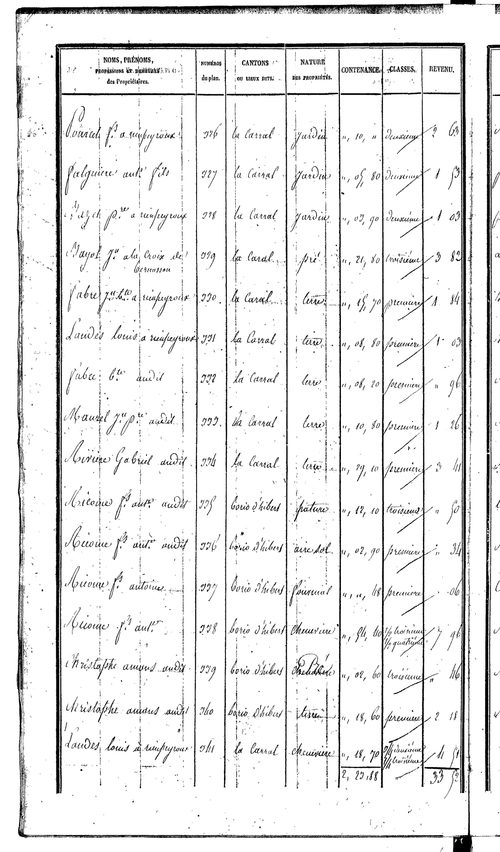 NOMS, PRÉNOMS, PROFESSIONS ET DEMEURES des Propriétaires. NUMÉROS du plan. CANTONS OU LIEUX DITS. NATURE DES PROPRIÉTÉS. CONTENANCE. CLASSES. REVENU.
a rieupeyroux 326 la Carral jardin ,, 10, ,, deuxième 2 63
falguiere ant. fils 327 la Carral jardin ,, 05, 80 deuxième 1 53
a rieupeyroux 328 la Carral jardin ,, 03, 90 deuxième 1 03
a la Croix de 329 la Caral pré ,, 21, 80 troisième 3 82
fabre a rieupeyroux 330. la Caral terre ,, 15, 70 première 1 84
Landés louis a rieupeyroux 331 la Carral terre ,, 08, 80 première 1 03
fabre audit 332 la Carral terre ,, 08, 20 première ,, 96
Maurel audit 333. la Carral terre ,, 10, 80 première 1 26
Rivière Gabriel audit 334 la Carral terre ,, 29, 10 première 3 41
Ricome ant. audit 335 borio d'hibert pature ,, 12, 10 troisieme ,, 50
Ricome ant. audit 336 borio d'hibert aire sol ,, 02, 90 première ,, 34
Ricome antoine 337 borio d'hibert ,, ,, 48 première 06
Ricome ant. 338 borio d'hibert cheneviere 7 96
Christophe amans audit 339 borio d'hibert ,, 02, 60 troisieme ,, 46
Christophe amans audit 340 borio d'hibert terre ,, 18, 60 première 2 18
Landés louis a rieupeyroux 341 la Carral cheneviere ,, 18, 70 deuxième troisième 4 51
2, 23, 88 33 52